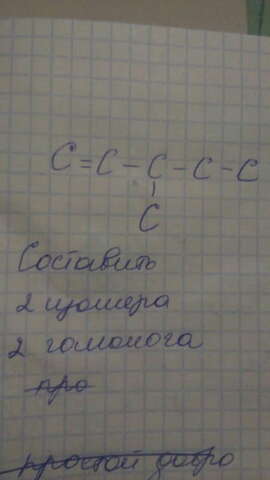 C=C-C-C-C
C
Составить
2 изомера
2 гомолога
про
простой добро